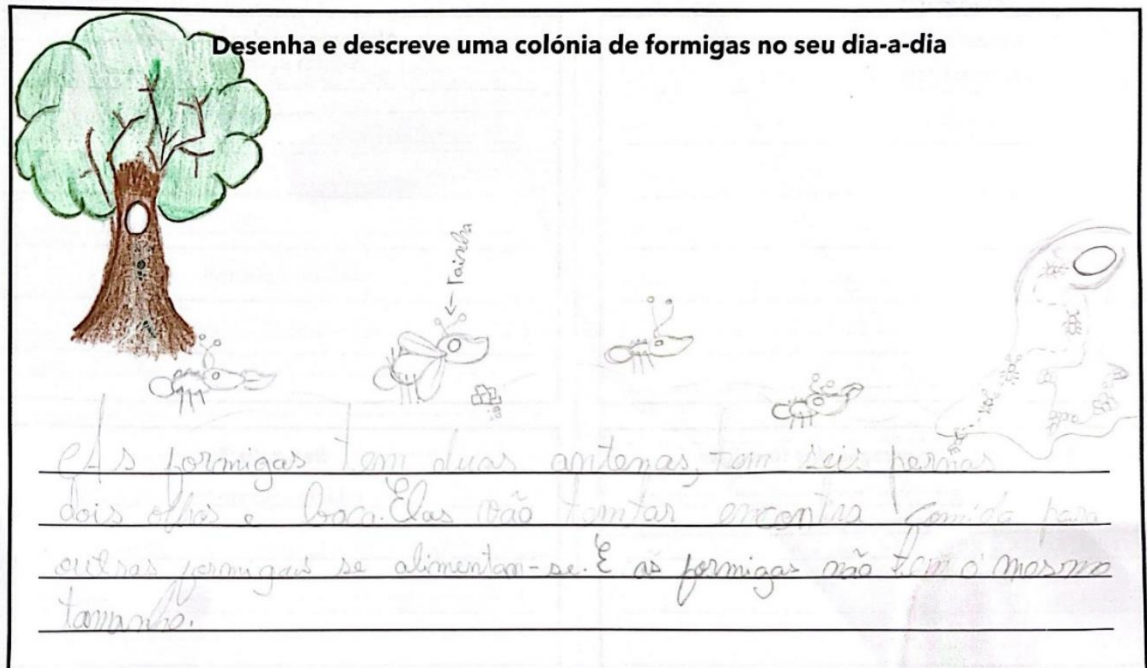 Desenha e descreve uma colónia de formigas no seu dia-a-dia
← rainha
As formigas tem duas antenas, tem seis pernas
dois olhos e boca. Elas vão tentar encontra comida para
outras formigas se alimentam-se. E as formigas não tem o mesmo
tamanho.